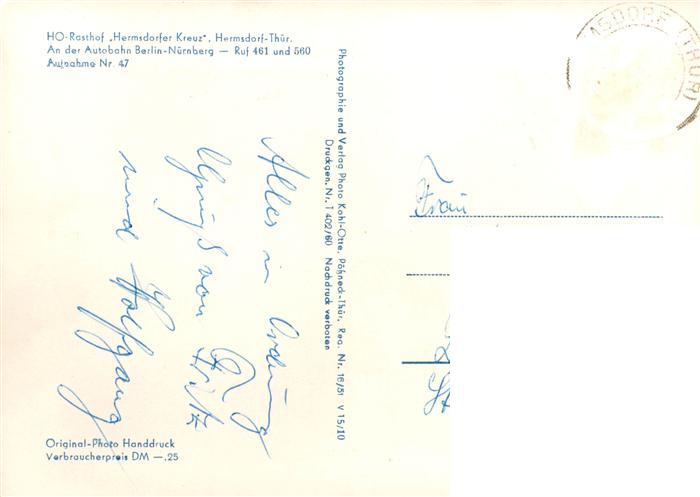 HO-Rasthof „Hermsdorfer Kreuz", Hermsdorf-Thür.
An der Autobahn Berlin-Nürnberg — Ruf 461 und 560
Aufnahme Nr. 47
Alles in Ordnung
Gruß von Fritz
und Wolfgang
Original-Photo Handdruck
Verbraucherpreis DM —,25
Photographie und Verlag Photo Kohl-Otte, Pößneck-Thür. Reg. Nr. 16/51 V 15/10
Druckgen. Nr. T 402/60 Nachdruck verboten
MSDORF (THÜR)
Frau